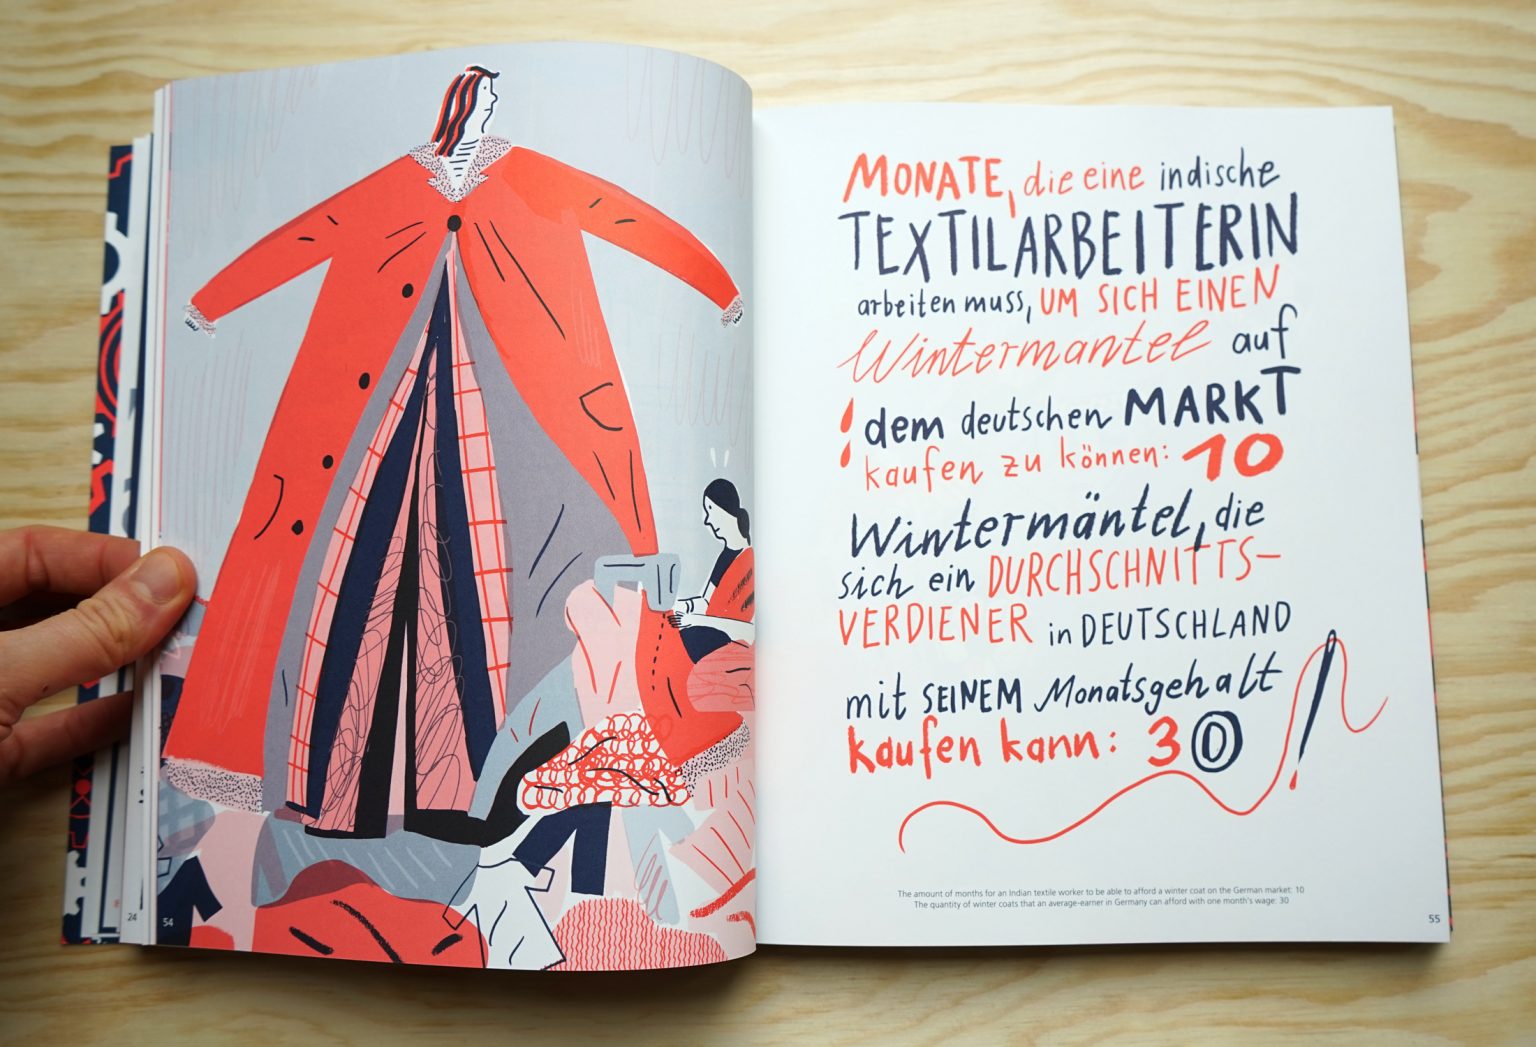 24
54
MONATE, die eine indische
TEXTILARBEITERIN
arbeiten muss, UM SICH EINEN
Wintermantel auf
dem deutschen MARKT
kaufen zu können: 10
Wintermäntel, die
sich ein DURCHSCHNITTS-
VERDIENER in DEUTSCHLAND
mit SEINEM Monatsgehalt
kaufen kann: 30
The amount of months for an Indian textile worker to be able to afford a winter coat on the German market: 10
The quantity of winter coats that an average-earner in Germany can afford with one month's wage: 30
55